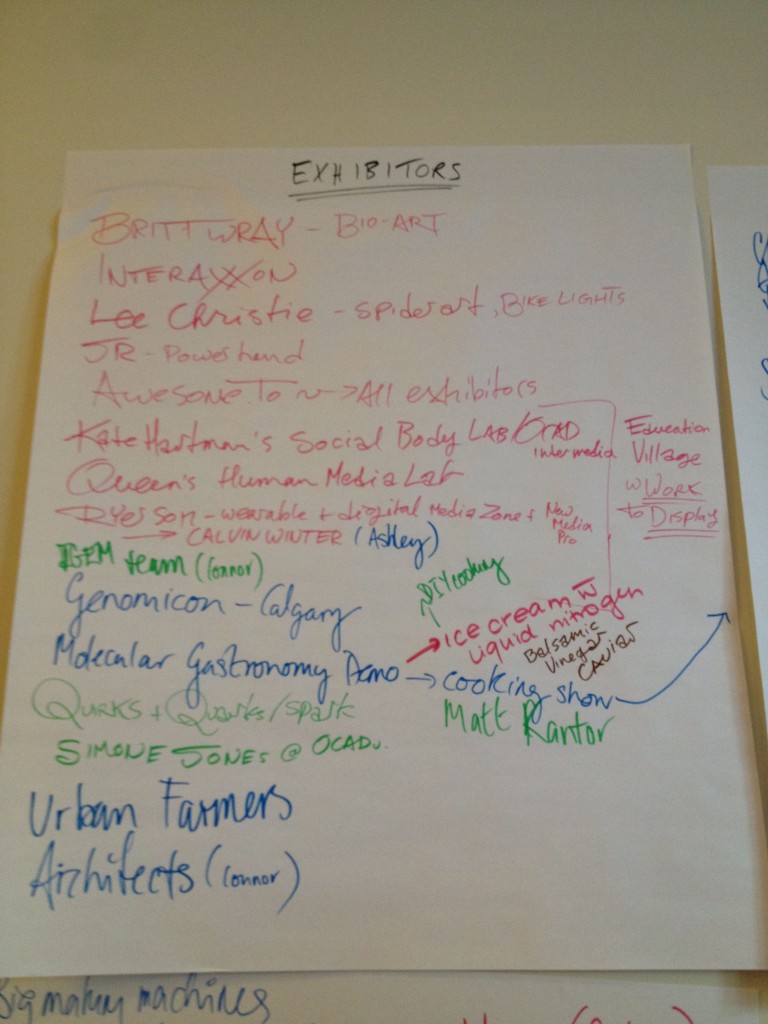 EXHIBITORS
BRITT WRAY - BIO-ART
INTERAXON
Lee Christie - spiderart, BIKE LIGHTS
JR - Powerhand
AWESOME TO ~ -> All exhibitors
Kate Hartman's Social Body LAB/OCAD
Intermedia
Education
Village
w WORK
to DISPLAY
Queen's Human Media Lab
RYERSON - wearable + diogital Media Zone + New
Media
Pro
→ CALVIN WINTER (Ashley)
IGEM team (Connor)
DIY cooking
Genomicon - Calgary
Molecular Gastronomy Demo
→ Ice cream w
liquid nitrogen
Balsamic
Vinegar
CAVIAR
→ cooking show
Matt Kantor
QUIRKS + QUARKS/SPARK
SIMONE JONES @ OCADU.
Urban Farmers
Architects (Connor)
Big making machines